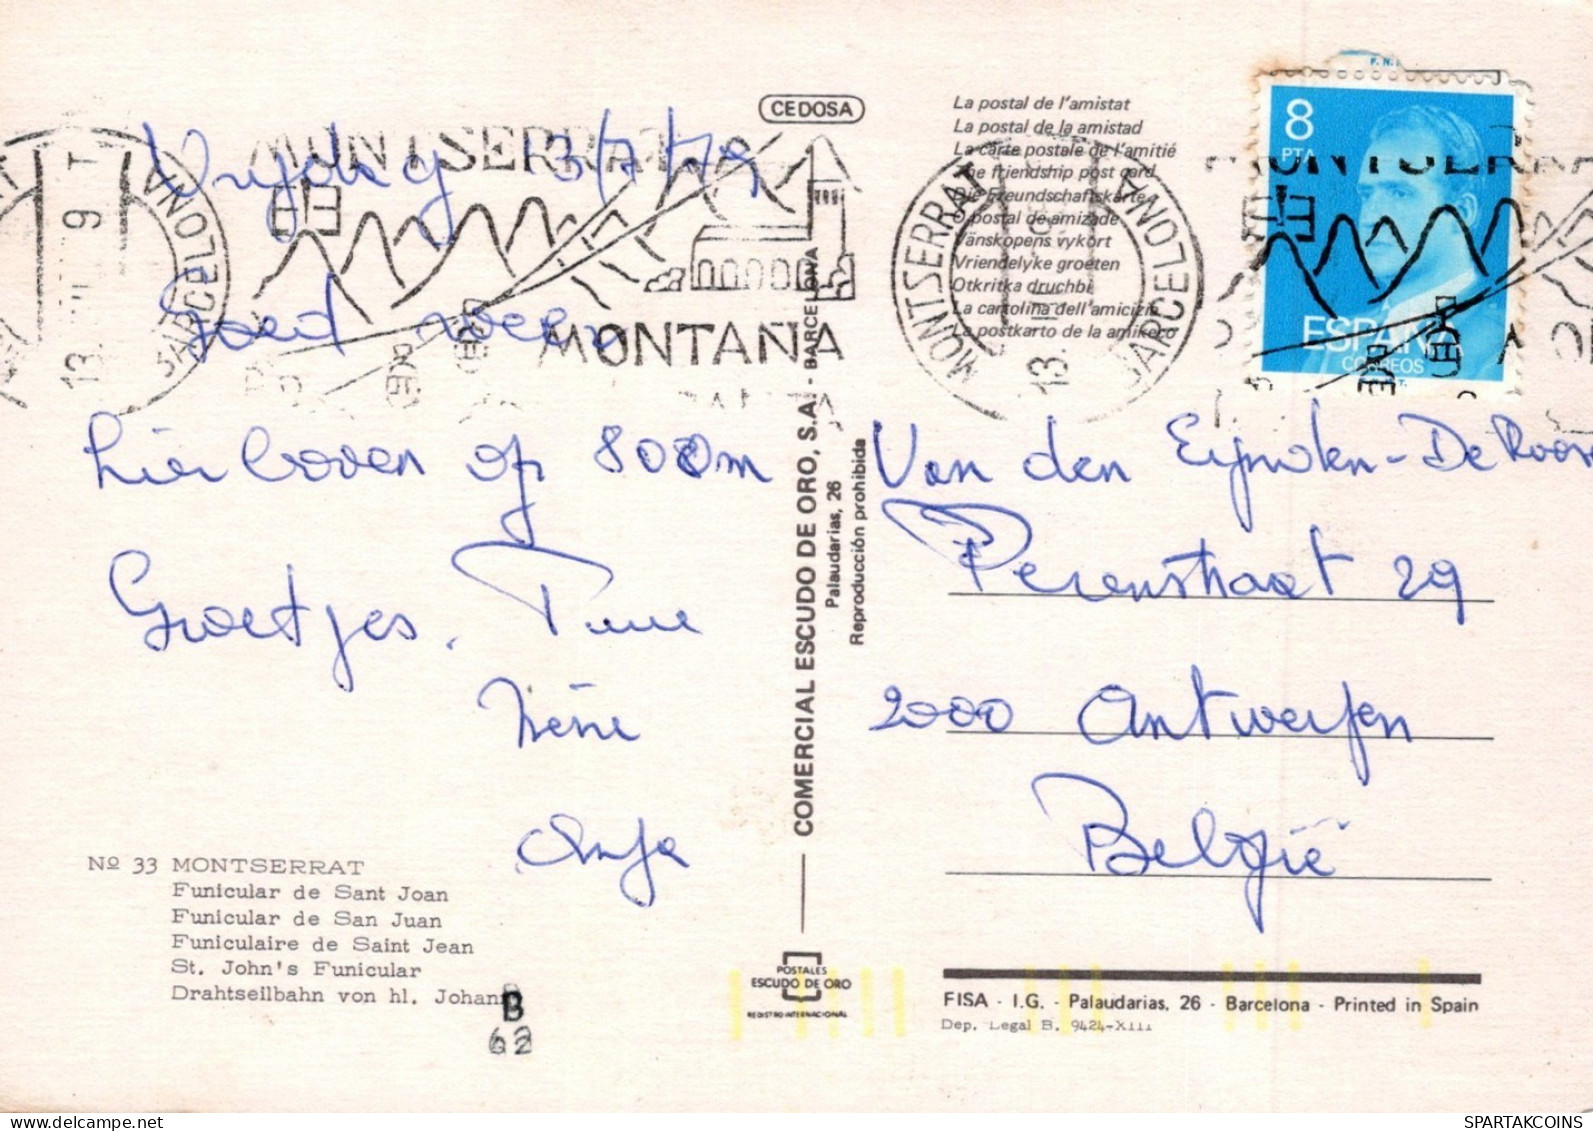 CEDOSA
La postal de l'amistat
La postal de la amistad
La carte postale de l'amitié
The friendship post card
Die Freundschaftskarte
O postal de amizade
Vänskopens vykort
Vriendelyke groeten
Otkritka druchbi
La cartolina dell'amicizia
La postkarto de la amikeco
8
PTA
ESPAÑA
CORREOS
MONTSERRAT
MONTAÑA
MONTSERRAT
BARCELONA
13.
9
Vrijdag 13/7/79
Goed weer
hier boven op 800m
Groetjes.
Irène
Anja
Van den Eijnden - De Roos
2000 Antwerpen
België
COMERCIAL ESCUDO DE ORO, S.A. - BARCELONA
Palaudarias, 26
Reproducción prohibida
Nº 33 MONTSERRAT
Funicular de Sant Joan
Funicular de San Juan
Funiculaire de Saint Jean
St. John's Funicular
Drahtseilbahn von hl. Johann
B
62
POSTALES
ESCUDO DE ORO
REGISTRO INTERNACIONAL
FISA - I.G. - Palaudarias, 26 - Barcelona - Printed in Spain
Dep. Legal B. 9424-XIII
SPARTAKCOINS.COM